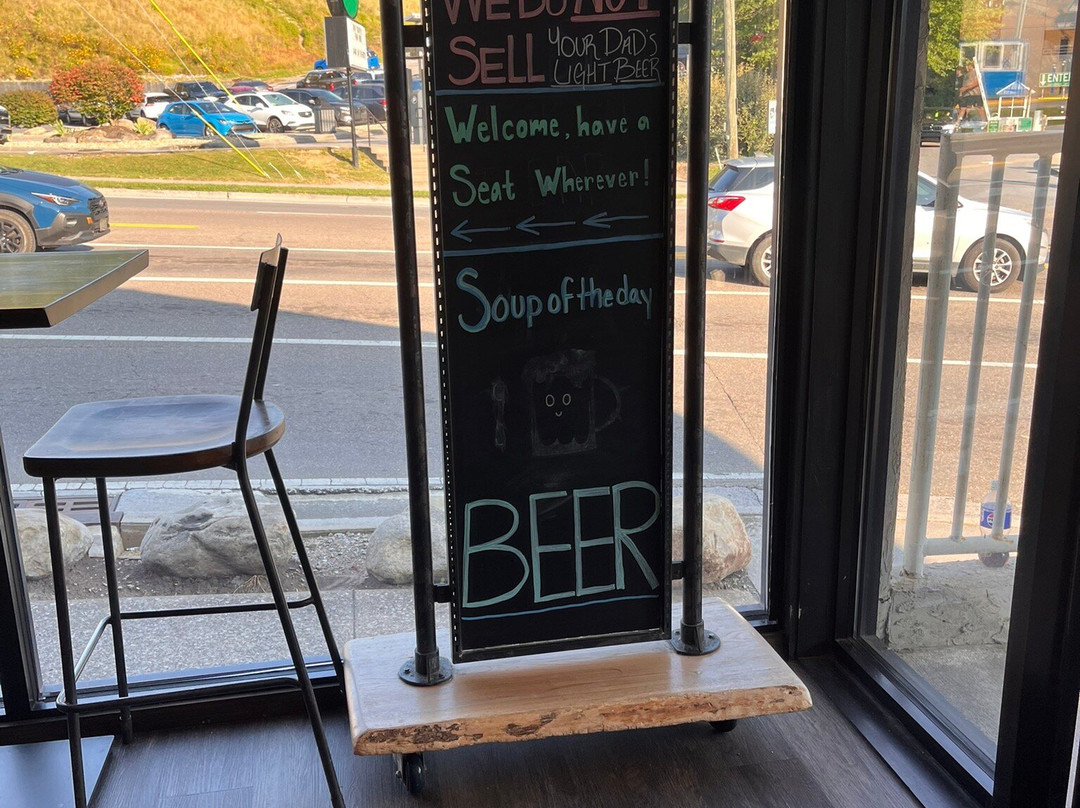 WE DO NOT
SELL YOUR DAD'S
LIGHT BEER
Welcome, have a
Seat Wherever!
Soup of the day
BEER
ENTER